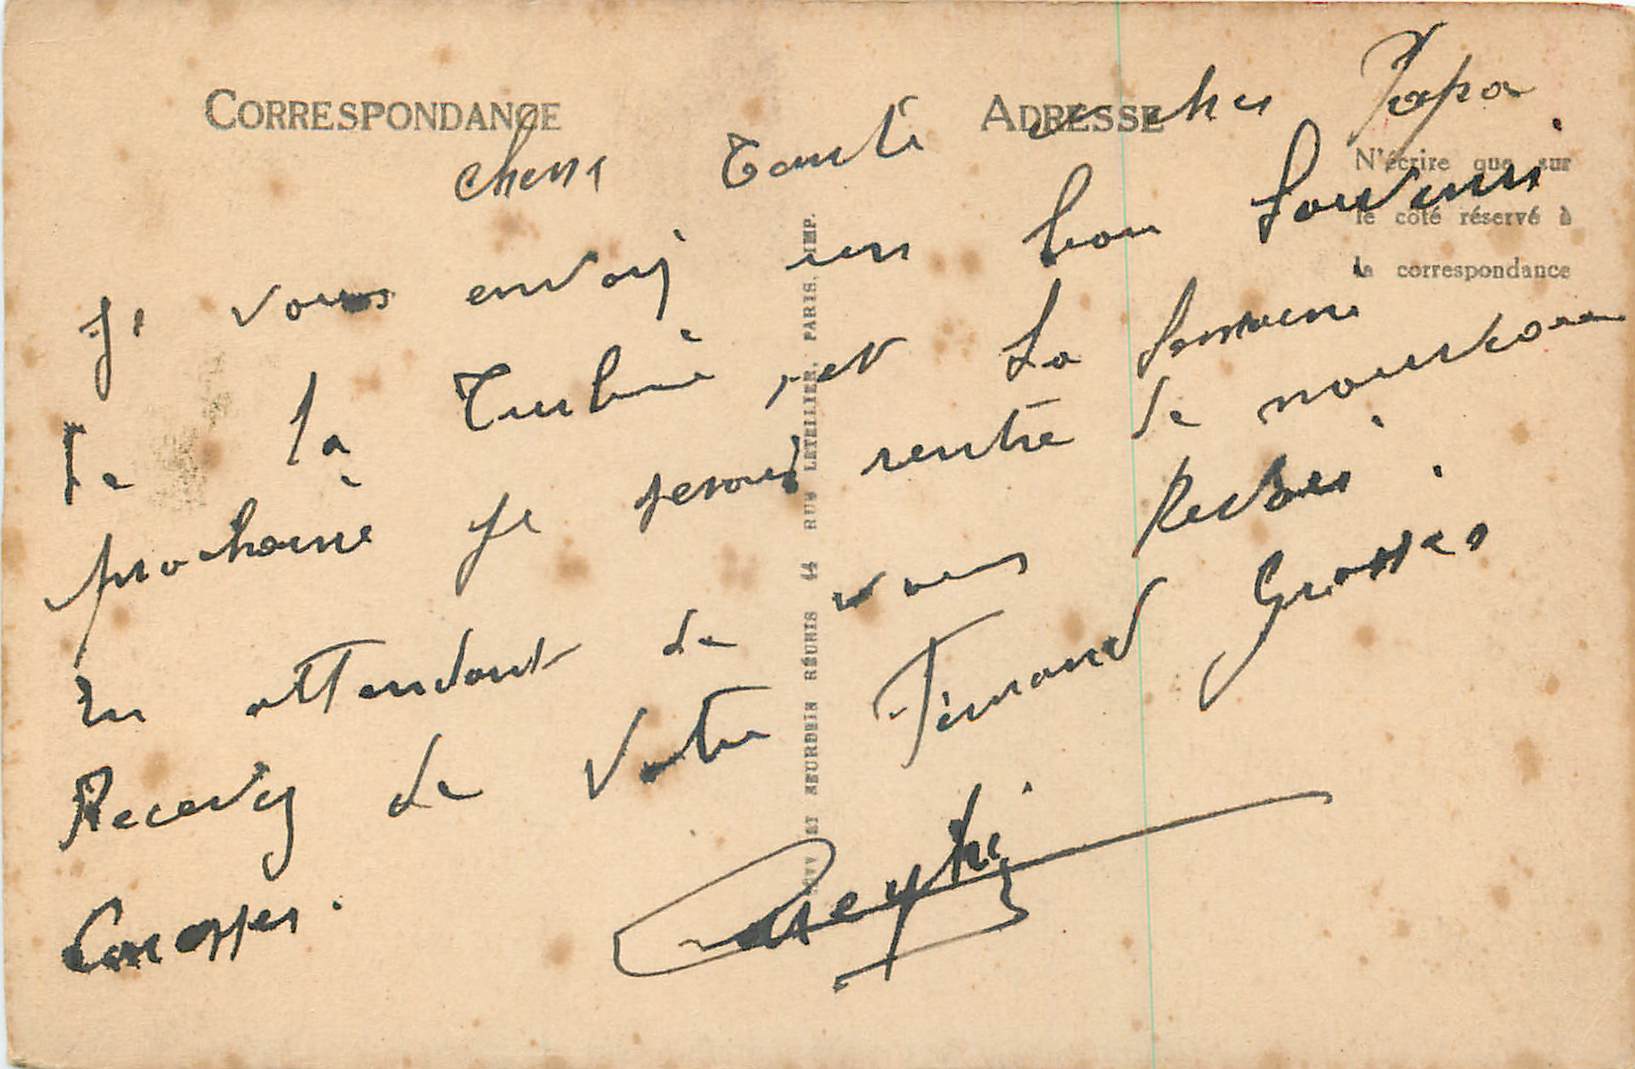 CORRESPONDANCE
ADRESSE
N'écrire que sur
le côté réservé à
la correspondance
chers Tante cher Papa
Je vous envoi un bon Souvenir
de la Turbie, et la semaine
prochaine je serais rentré de nouveau
En attendant de vous
Recevez de Votre Fernand Grosses
Caresses.
LEVY ET NEURDEIN RÉUNIS 44 RUE LETELLIER, PARIS. IMP.